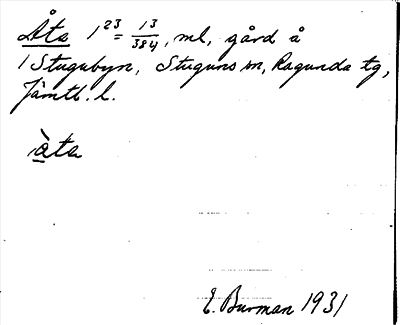 Åta 1 23 = 13/384, ml, gård å
1 Stugubyn, Stuguns sn, Ragunda tg,
Jämtl. l.
àta
E. Burman 1931